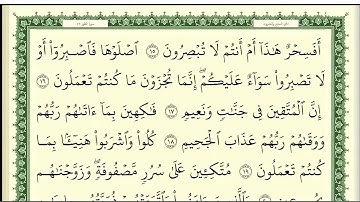 أَفَسِحْرٌ هَٰذَآ أَمْ أَنتُمْ لَا تُبْصِرُونَ ١٥ ٱصْلَوْهَا فَٱصْبِرُوٓا۟ أَوْ
لَا تَصْبِرُوا۟ سَوَآءٌ عَلَيْكُمْ ۖ إِنَّمَا تُجْزَوْنَ مَا كُنتُمْ تَعْمَلُونَ ١٦
إِنَّ ٱلْمُتَّقِينَ فِى جَنَّٰتٍ وَنَعِيمٍ ١٧ فَٰكِهِينَ بِمَآ ءَاتَىٰهُمْ رَبُّهُمْ
وَوَقَىٰهُمْ رَبُّهُمْ عَذَابَ ٱلْجَحِيمِ ١٨ كُلُوا۟ وَٱشْرَبُوا۟ هَنِيٓـًٔۢا بِمَا
كُنتُمْ تَعْمَلُونَ ١٩ مُتَّكِـِٔينَ عَلَىٰ سُرُرٍ مَّصْفُوفَةٍ ۖ وَزَوَّجْنَٰهُم